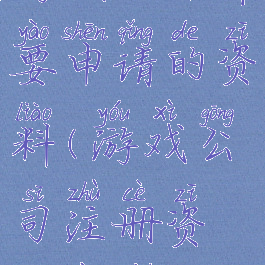 yào shēn qǐng de zī
要申请的资
liào yóu xì gōng
料(游戏公
sī zhù cè zī
司注册资